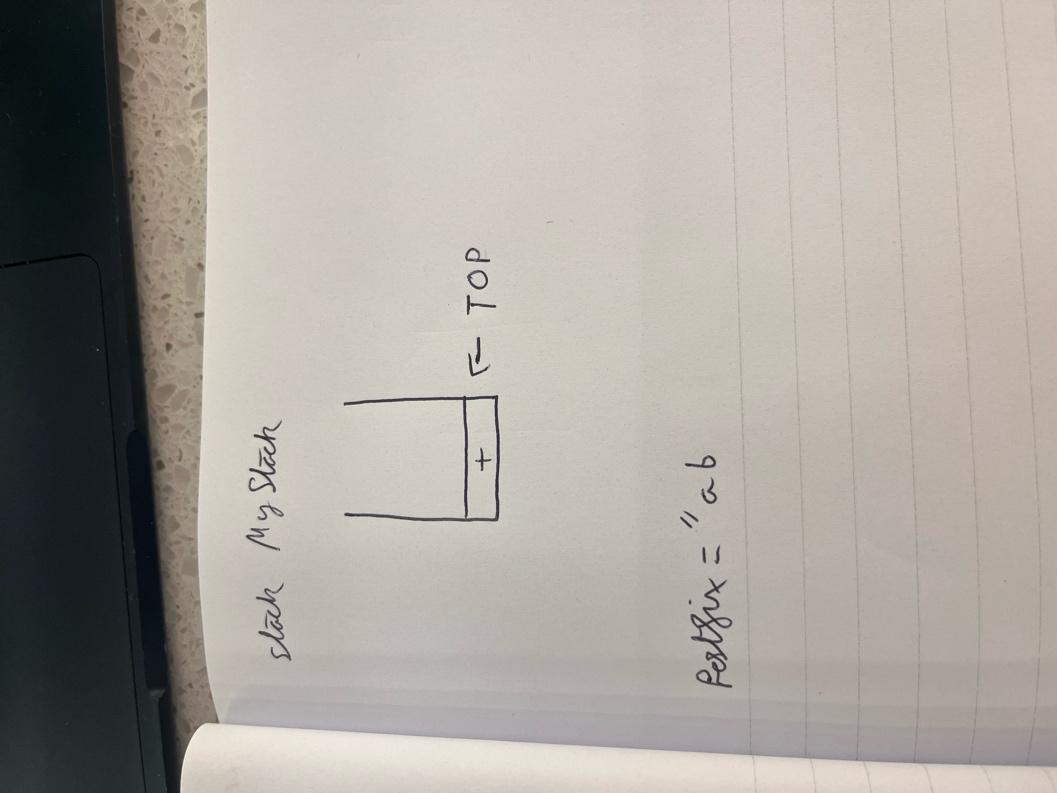 stack My Stack
+
← TOP
Postfix = " ab